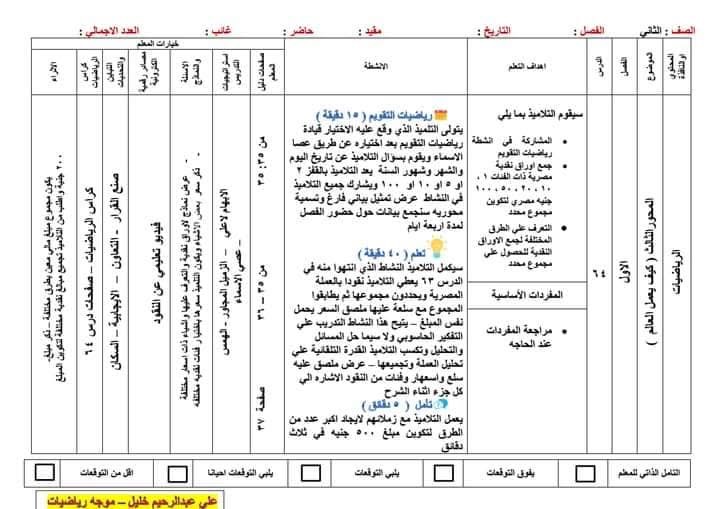 الصف : الثاني الفصل : التاريخ : مقيد : حاضر : غائب : العدد الاجمالي :
المحتوي
الموضوع
الفصل
الدرس
اهداف التعلم
الانشطة
خيارات المعلم
صفحات دليل المعلم
استراتيجيات التدريس
الاسئلة والنماذج
مصادر رقمية الكترونية
كراس الرياضيات
الاثراء
الرياضيات
المحور الثالث ( كيف يعمل العالم )
الاول
٦٤
سيقوم التلاميذ بما يلي
المشاركة في انشطة
رياضيات التقويم
جمع اوراق نقدية
مصرية ذات الفئات ٠١
١٠ ، ٢٠ ، ٥٠ ، ١٠٠
جنيه مصري لتكوين
مجموع محدد
التعرف علي الطرق
المختلفة لجمع الاوراق
النقدية للحصول علي
مجموع محدد
المفردات الأساسية
مراجعة المفردات
عند الحاجه
رياضيات التقويم ( ١٥ دقيقة )
يتولى التلميذ الذي وقع عليه الاختيار قيادة
رياضيات التقويم بعد اختياره عن طريق عصا
الاسماء ويقوم بسؤال التلاميذ عن تاريخ اليوم
والشهر وشهور السنة يعد التلاميذ بالقفز ٢
او ٥ او ١٠ او ١٠٠ ويشارك جميع التلاميذ
في النشاط عرض تمثيل بياني فارغ وتسمية
محوريه سنجمع بيانات حول حضور الفصل
لمدة اربعة ايام
تعلم ( ٤٠ دقيقة )
سيكمل التلاميذ النشاط الذي انتهوا منه في
الدرس ٦٣ يعطي التلاميذ نقودا بالعملة
المصرية ويحددون مجموعها ثم يطابقوا
المجموع مع سلعة عليها ملصق السعر يحمل
نفس المبلغ – يتيح هذا النشاط التدريب علي
التفكير الحاسوبي ولا سيما حل المسائل
والتحليل وتكسب التلاميذ القدرة التلقائية علي
تحليل العملة وتجميعها – عرض ملصق عليه
سلع واسعارها وفئات من النقود الاشاره الي
كل جزء اثناء الشرح
تأمل ( ٥ دقائق )
يعمل التلاميذ مع زملائهم لايجاد اكبر عدد من
الطرق لتكوين مبلغ ٥٠٠ جنيه في ثلاث
دقائق
من ٣٥: ٣٥
من ٣٥ – ٣٦
صفحة ٣٧
الابهام لاعلي – الزميل المجاور - الهمس
– عصي الاسماء
- عرض نماذج لاوراق نقدية والتعرف عليها واشياء ذات اسعار مختلفة
- ذكر سعر بعض الاشياء ويكون التلميذ سعرها باختيار فئات نقديه مختلفه
فيديو تعليمي عن النقود
صنع القرار – التعاون – الايجابية – السكان
كراس الرياضيات – صفحات درس ٦٤
يكون مجموع مبلغ مالي معين بطرق مختلفة – ذكر مبلغ
٢٠٠ جنية واطلب من التلاميذ تجميع مبالغ نقدية مختلفة لتكوين المبلغ
التامل الذاتي للمعلم
يفوق التوقعات
يلبي التوقعات
يلبي التوقعات احيانا
اقل من التوقعات
علي عبدالرحيم خليل – موجه رياضيات